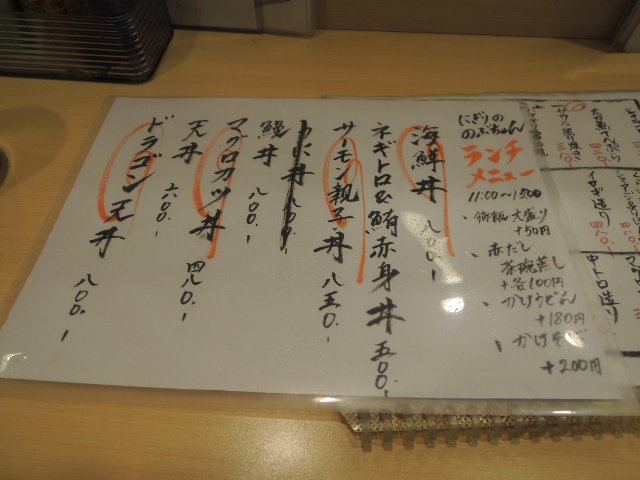 にぎりの
のぶちゃん
ランチ
メニュー
11:00～15:00
・御飯 大盛り
+50円
・赤だし
茶碗蒸し
+各100円
・かけうどん
+180円
・かけそば
+200円
海鮮丼 八〇〇.-
ネギトロ&鮪赤身丼 五〇〇.-
サーモン親子丼 八五〇.-
うに丼 八〇〇.-
鰻丼 八〇〇.-
マグロカツ丼 四八〇.-
天丼 六〇〇.-
ドラゴン天丼 八〇〇.-
イサギ造り
中トロ造り